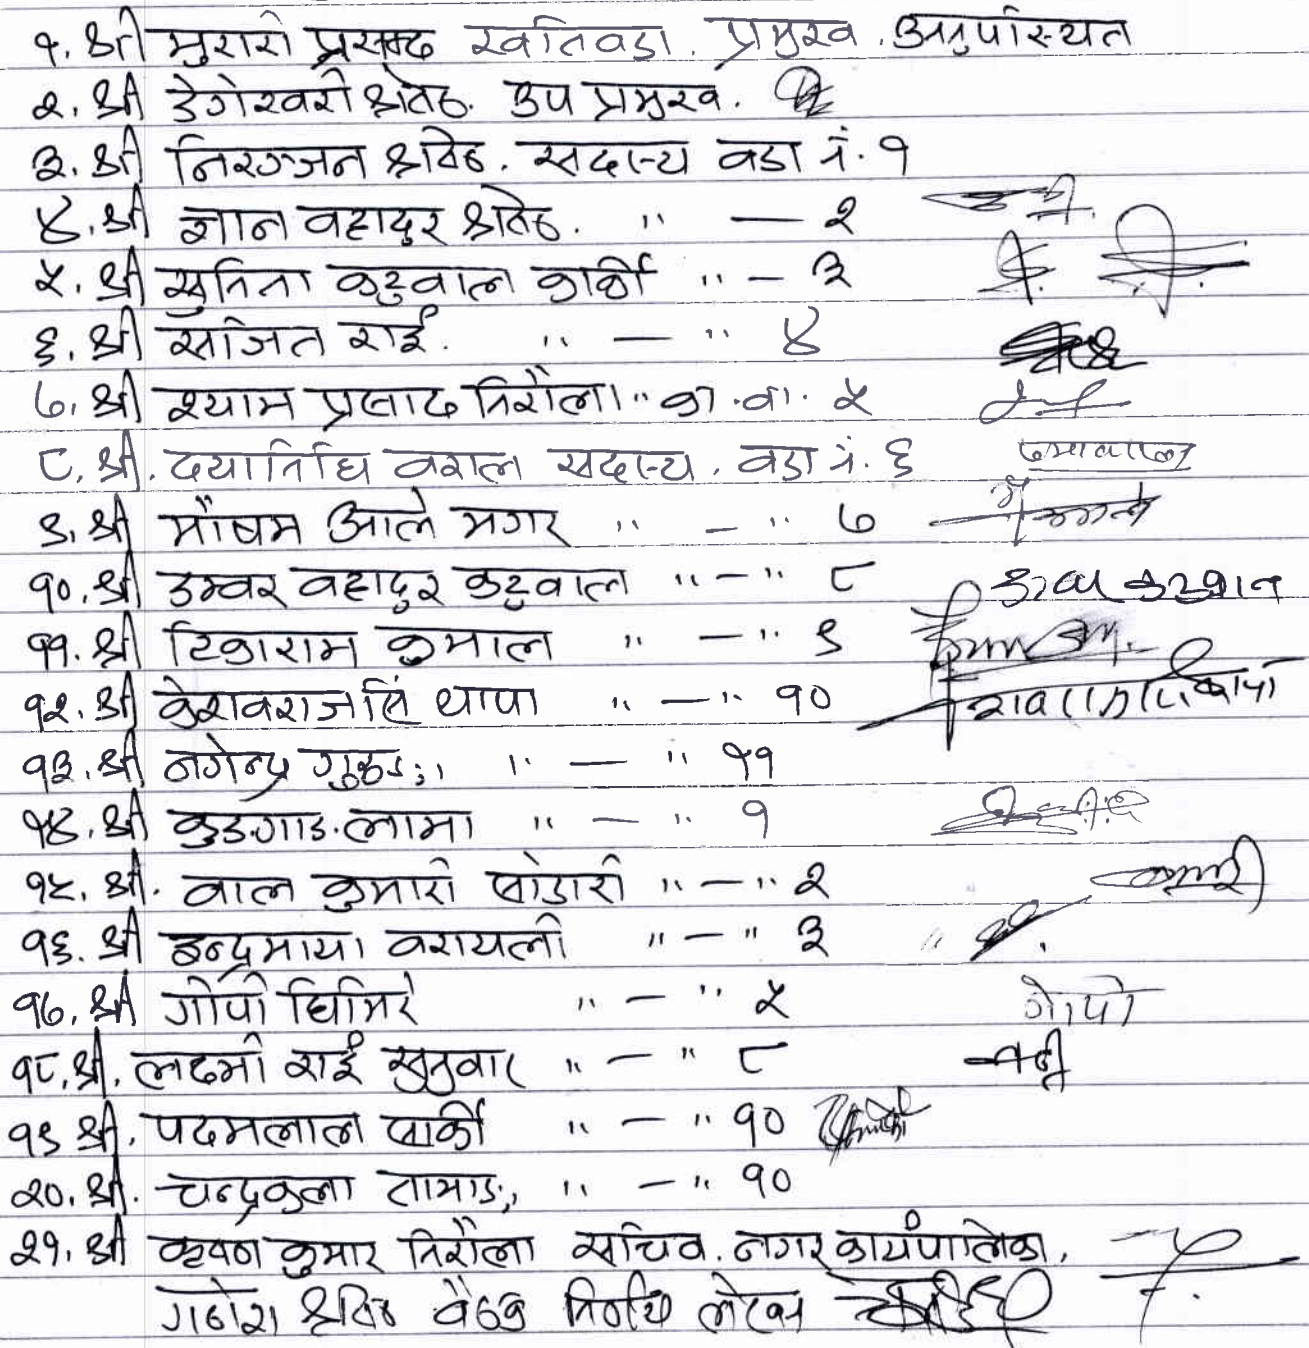 १. श्री मुरारी प्रसाद खतिवडा. प्रमुख. अनुपस्थित
२. श्री डेगेश्वरी श्रेष्ठ. उप प्रमुख.
३. श्री निरञ्जन श्रेष्ठ. सदस्य वडा नं. १
४. श्री ज्ञान बहादुर श्रेष्ठ. " — २
५. श्री सुनिता कटुवाल कार्की " — ३
६. श्री सजित राई. " — " ४
७. श्री श्याम प्रसाद निरौला " का.वा. ५
८. श्री. दयानिधि वराल सदस्य. वडा नं. ६
९. श्री मौषम आले मगर " — " ७
१०. श्री डम्बर बहादुर कटुवाल " — " ८
११. श्री टिकाराम कुमाल " — " ९
१२. श्री केशवराज सिं थापा " — " १०
१३. श्री नगेन्द्र " — " ११
१४. श्री लामा " — " १
१५. श्री. बाल कुमारी " — " २
१६. श्री इन्द्रमाया वरायली " — " ३
१७. श्री गोपी घिमिरे " — " ५ गोपी
१८. श्री. लक्ष्मी राई सुनुवार " — " ८
१९ श्री. पदमलाल सार्की " — " १०
२०. श्री. चन्द्रकला तामाङ " — " १०
२१. श्री कृष्ण कुमार निरौला सचिव. नगर कार्यपालिका.
गणेश श्रेष्ठ बैठक निर्णय लेखन